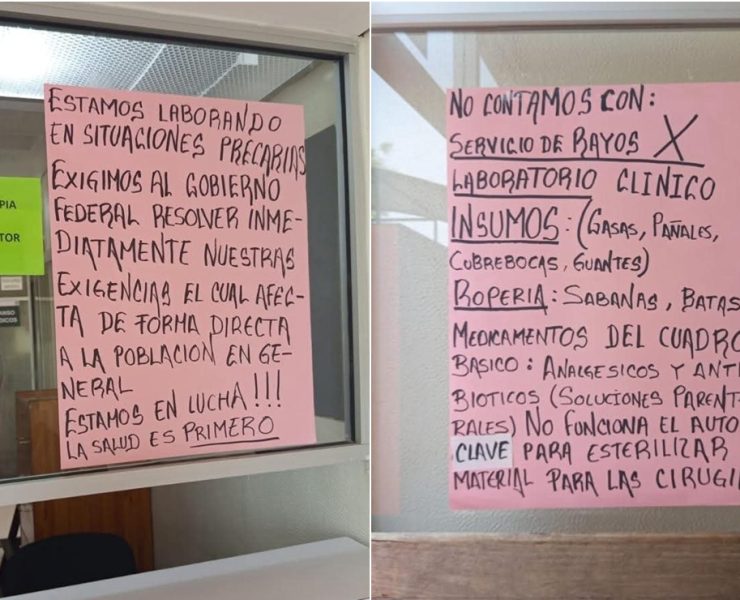 ESTAMOS LABORANDO
EN SITUACIONES PRECARIAS
EXIGIMOS AL GOBIERNO
FEDERAL RESOLVER INME-
DIATAMENTE NUESTRAS
EXIGENCIAS EL CUAL AFEC-
TA DE FORMA DIRECTA
A LA POBLACION EN GE-
NERAL
ESTAMOS EN LUCHA!!!
LA SALUD ES PRIMERO
PIA
TOR
NO CONTAMOS CON:
SERVICIO DE RAYOS X
LABORATORIO CLINICO
INSUMOS: (GASAS, PAÑALES,
CUBREBOCAS, GUANTES)
ROPERIA: SABANAS, BATAS
MEDICAMENTOS DEL CUADRO
BASICO: ANALGESICOS Y ANTI
BIOTICOS (SOLUCIONES PARENT-
RALES) NO FUNCIONA EL AUTO
CLAVE PARA ESTERILIZAR
MATERIAL PARA LAS CIRUGI